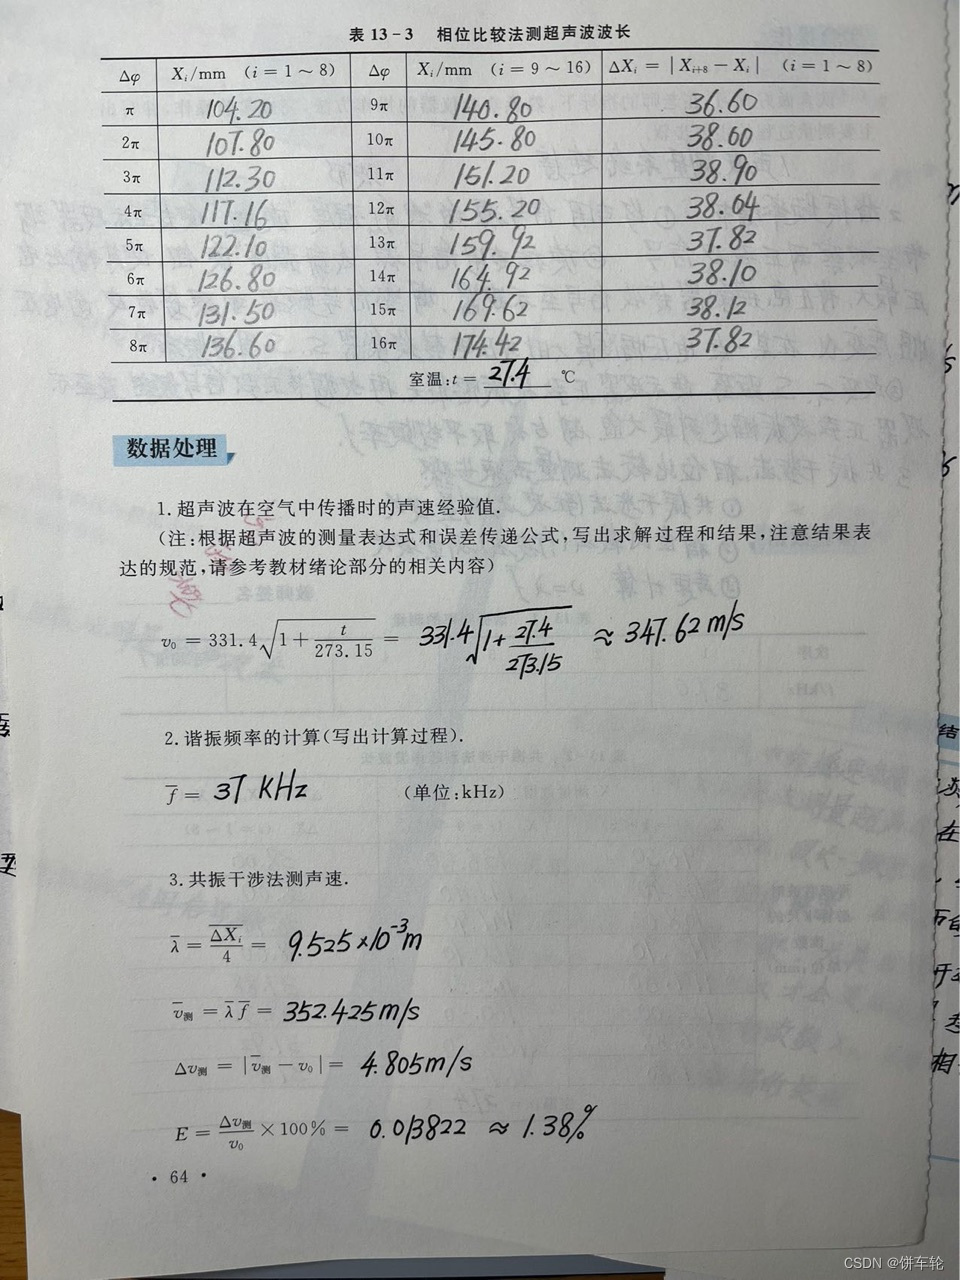 表 13-3 相位比较法测超声波波长
Δφ Xᵢ/mm (i=1~8) Δφ Xᵢ/mm (i=9~16) ΔXᵢ=|Xᵢ₊₈-Xᵢ| (i=1~8)
π 104.20 9π 140.80 36.60
2π 107.80 10π 145.80 38.00
3π 112.30 11π 151.20 38.90
4π 117.16 12π 155.20 38.04
5π 122.10 13π 159.92 37.82
6π 126.80 14π 164.92 38.10
7π 131.50 15π 169.62 38.12
8π 136.60 16π 174.42 37.82
室温:t=27.4 ℃
数据处理
1.超声波在空气中传播时的声速经验值.
(注:根据超声波的测量表达式和误差传递公式,写出求解过程和结果,注意结果表
达的规范,请参考教材绪论部分的相关内容)
v₀=331.4√(1+t/273.15)=331.4√(1+27.4/273.15)≈347.62m/s
2.谐振频率的计算(写出计算过程).
f̄=37KHz (单位:kHz)
3.共振干涉法测声速.
λ̄=ΔX̄ᵢ/4=9.525×10⁻³m
v̄测=λ̄f̄=352.425m/s
Δv测=|v̄测-v₀|=4.805m/s
E=Δv测/v₀×100%=0.013822≈1.38%
·64·
CSDN @饼车轮